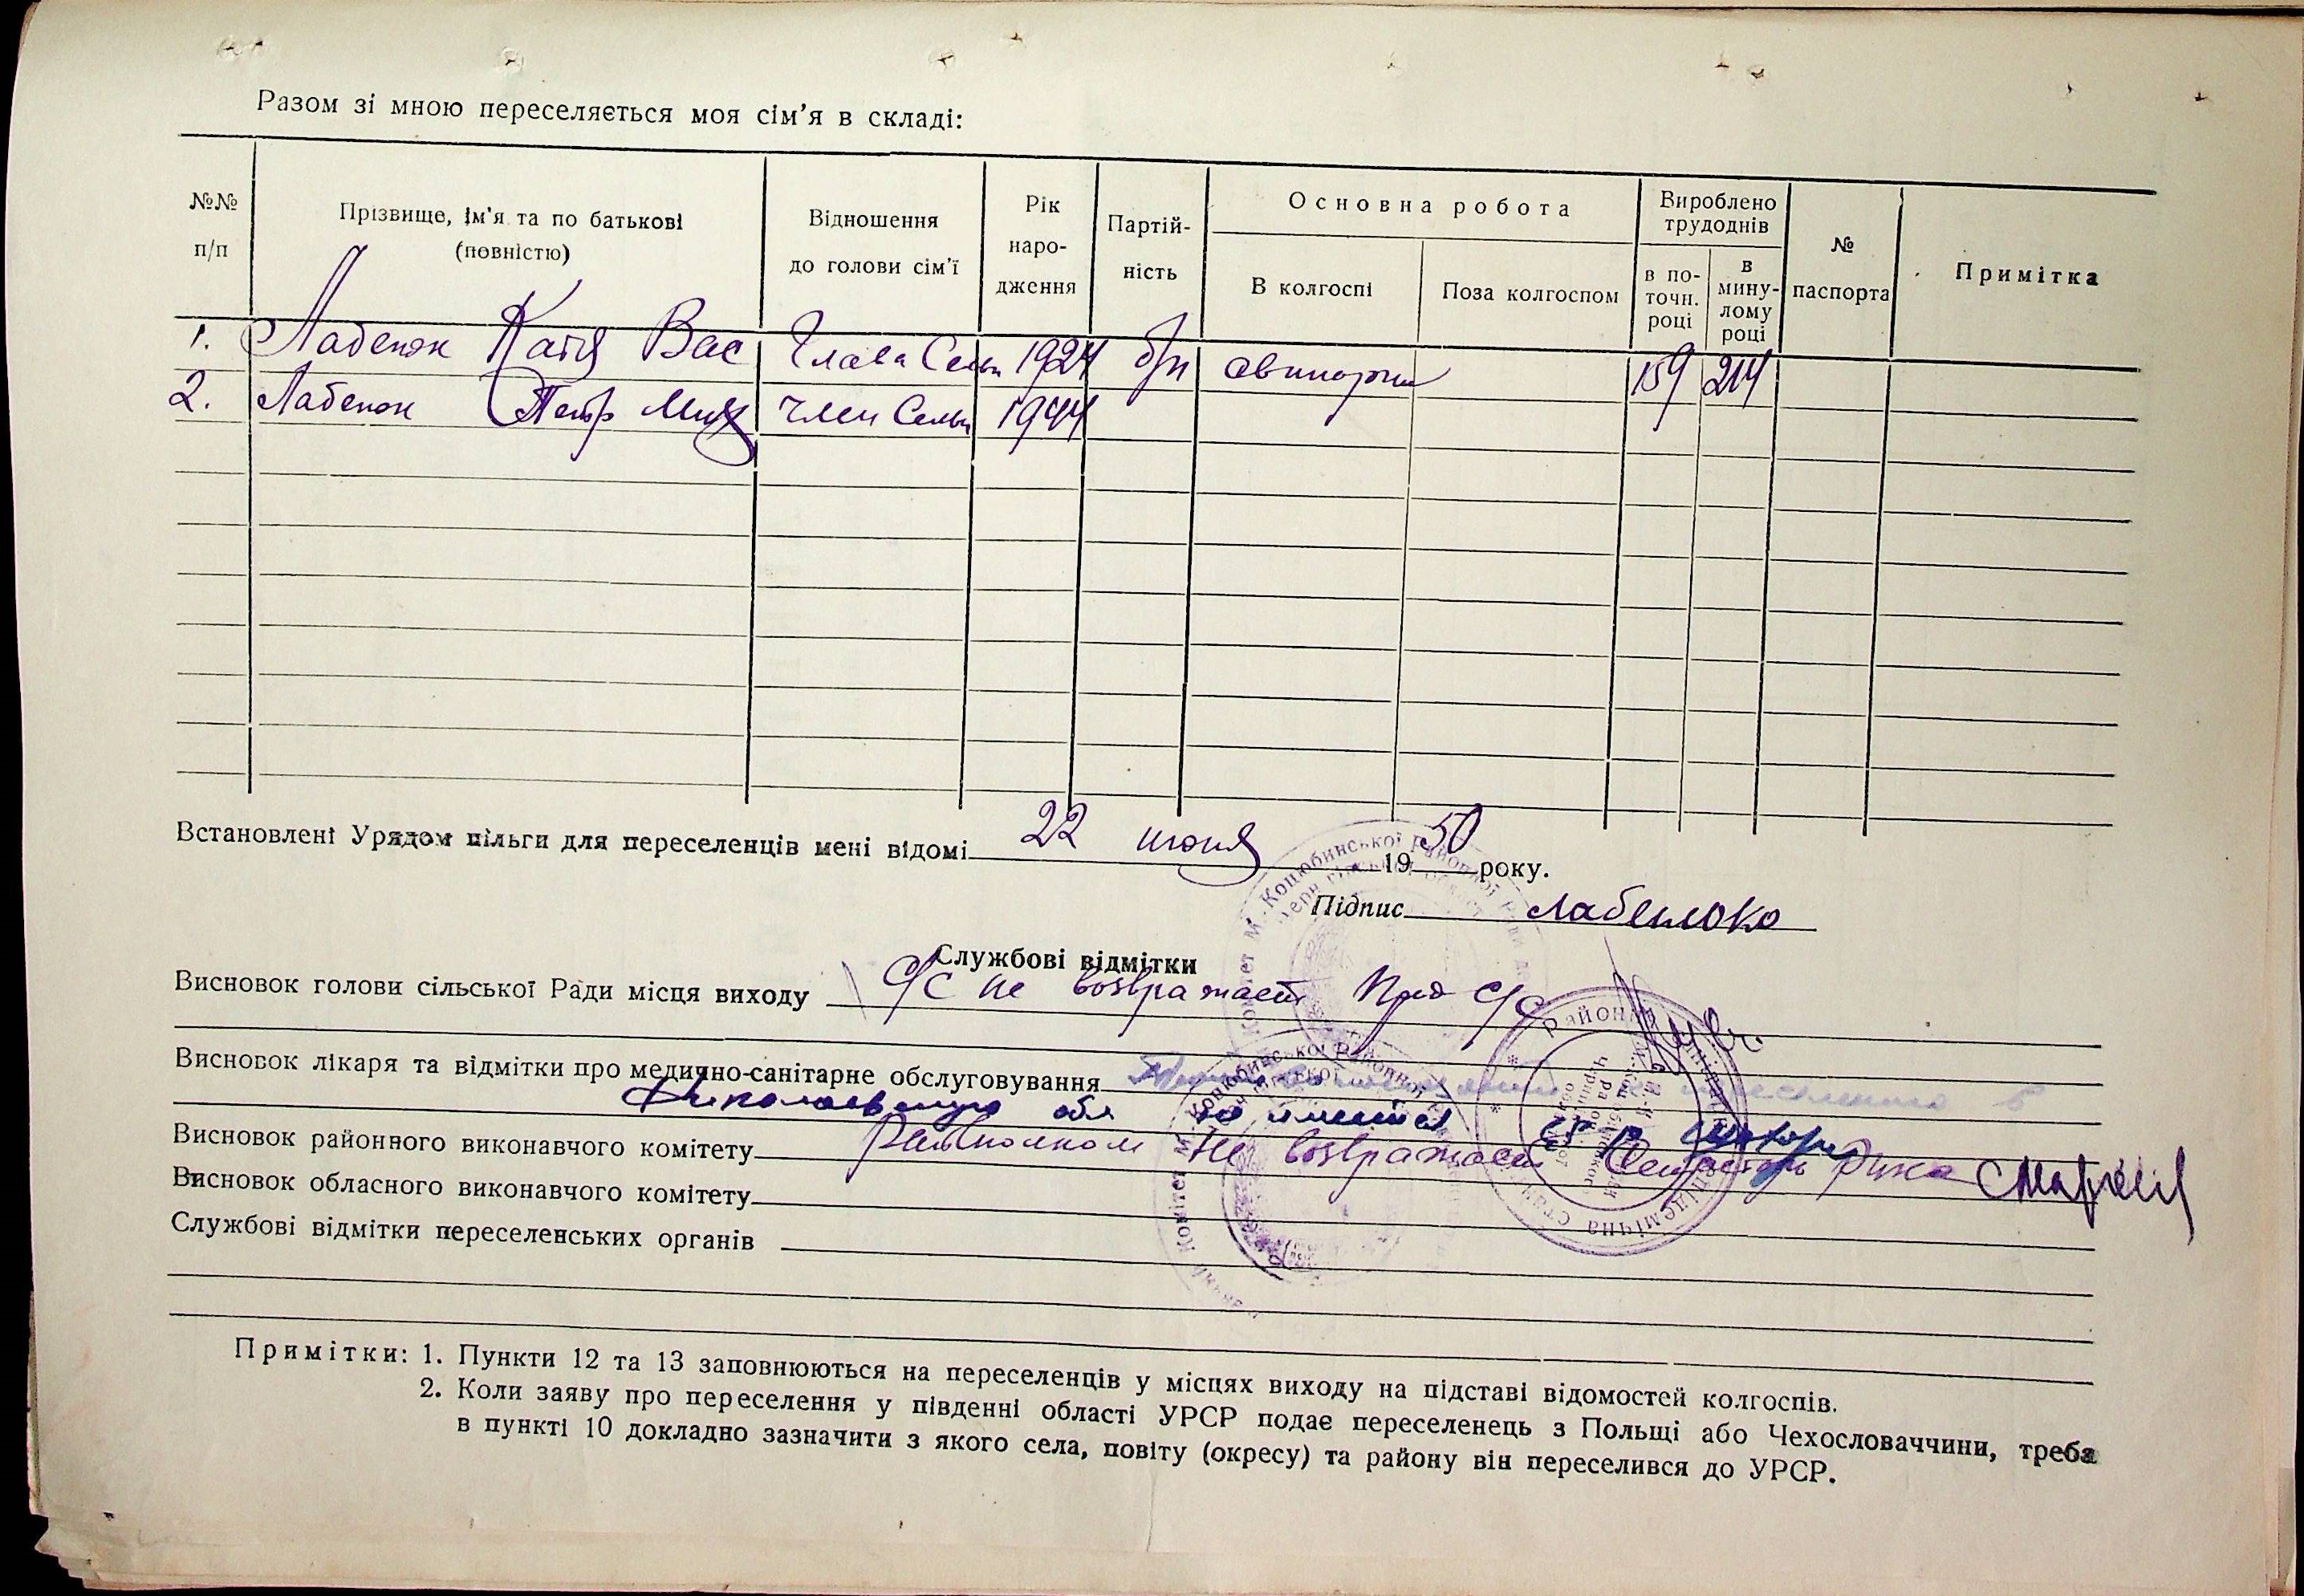 Разом зі мною переселяється моя сім'я в складі:
№№ п/п
Прізвище, ім'я та по батькові (повністю)
Відношення до голови сім'ї
Рік народження
Партійність
Основна робота
В колгоспі
Поза колгоспом
Вироблено трудоднів
в поточн. році
в минулому році
№ паспорта
Примітка
1. Лабенок Катя Вас Глава Семьи 1924 б/п 159 214
2. Лабенок Петр Мих член Семьи 1944
Встановлені Урядом пільги для переселенців мені відомі 22 июня 1950 року.
Підпис
Службові відмітки
Висновок голови сільської Ради місця виходу С/С не возвражает Пред С/С
Висновок лікаря та відмітки про медично-санітарне обслуговування
Николаевскую обл
Висновок районного виконавчого комітету не возвражает Секретарь Рика
Висновок обласного виконавчого комітету
Службові відмітки переселенських органів
Примітки: 1. Пункти 12 та 13 заповнюються на переселенців у місцях виходу на підставі відомостей колгоспів.
2. Коли заяву про переселення у південні області УРСР подає переселенець з Польщі або Чехословаччини, треба
в пункті 10 докладно зазначити з якого села, повіту (окресу) та району він переселився до УРСР.